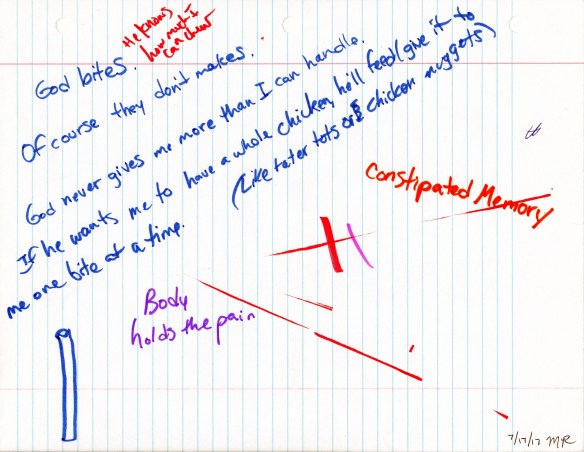 God bites.
He knows
how much I
can chew
Of course they don't makes.
God never gives me more than I can handle.
If he wants me to have a whole chicken, he'll feed (give it to
me one bite at a time.
(Like tater tots or chicken nuggets)
Constipated Memory
Body
holds the pain
7/17/17 MR